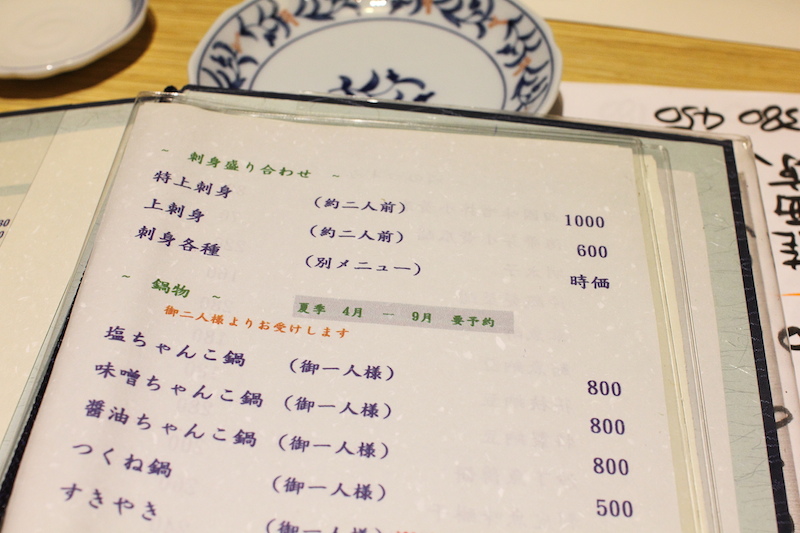 ~ 刺身盛り合わせ ~
特上刺身 (約二人前) 1000
上刺身 (約二人前) 600
刺身各種 (別メニュー) 時価
~ 鍋物 ~ 夏季 4月 -- 9月 要予約
御二人様よりお受けします
塩ちゃんこ鍋 (御一人様) 800
味噌ちゃんこ鍋 (御一人様) 800
醤油ちゃんこ鍋 (御一人様) 800
つくね鍋 (御一人様) 500
すきやき (御一人様)